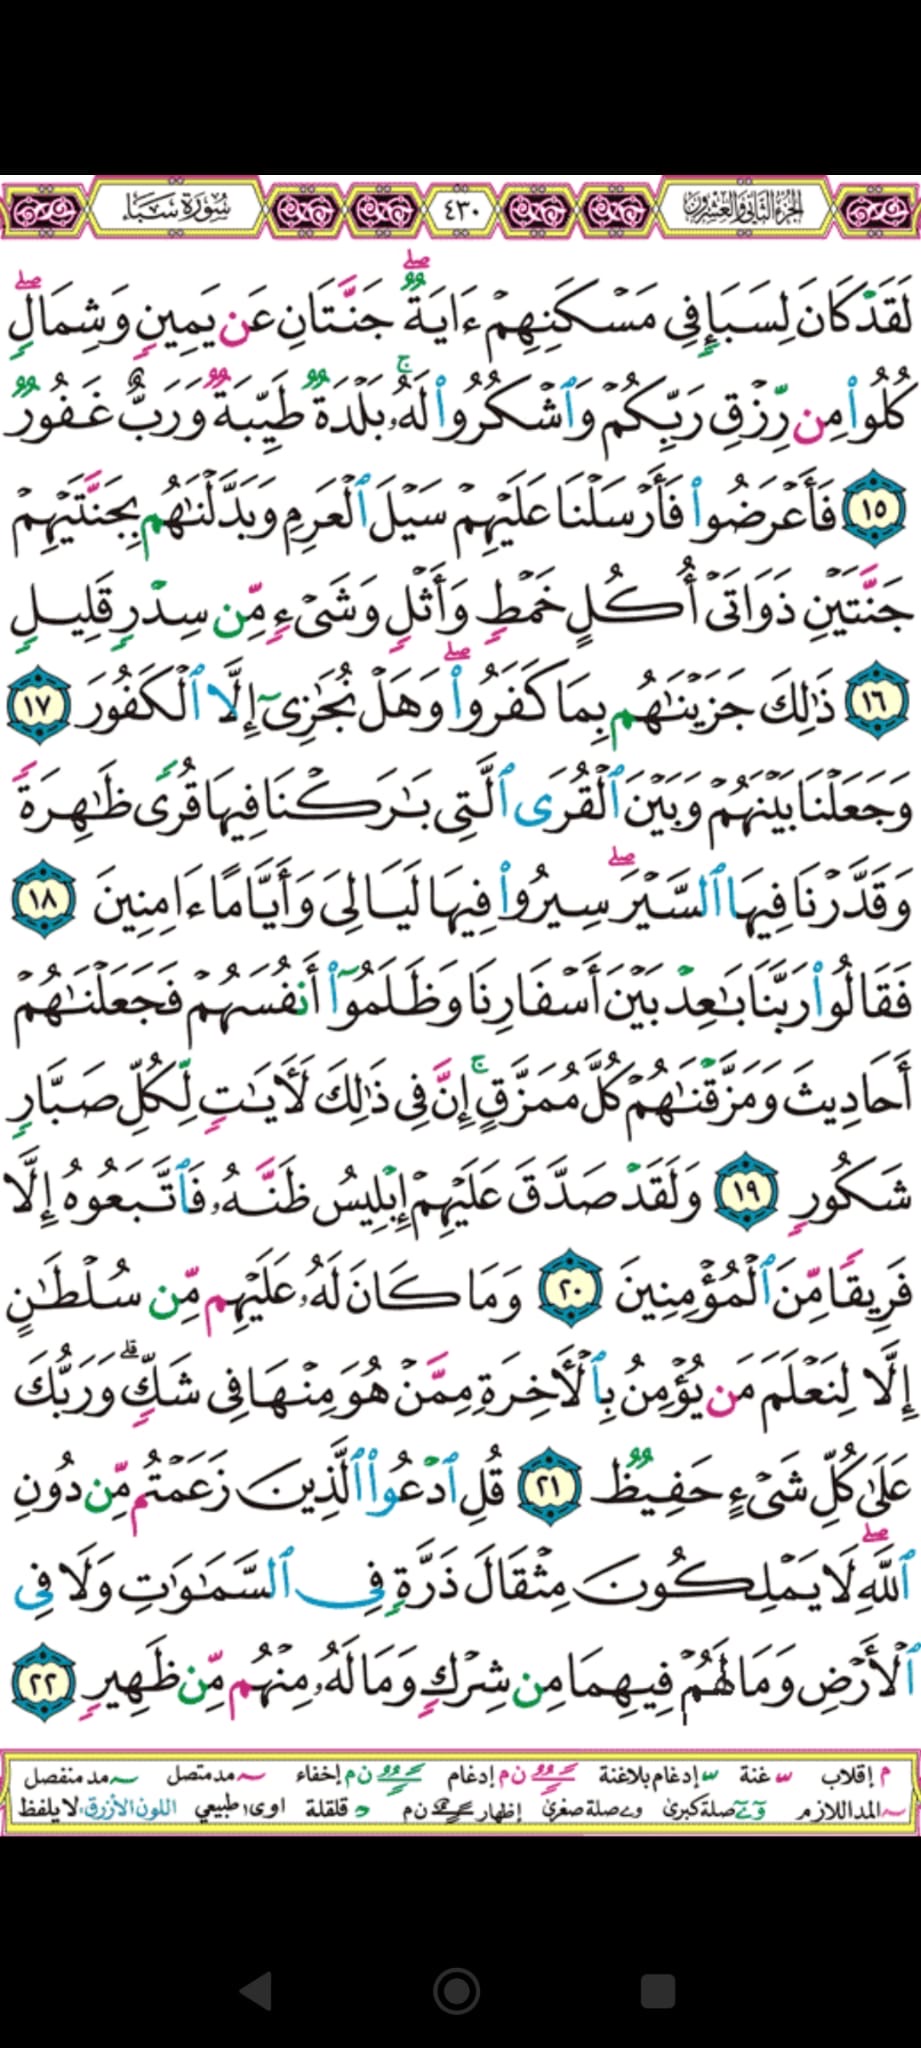 الجزء الثاني والعشرون ٤٣٠ سورة سبإ
لَقَدۡ كَانَ لِسَبَإٖ فِي مَسۡكَنِهِمۡ ءَايَةٞۖ جَنَّتَانِ عَن يَمِينٖ وَشِمَالٖۖ
كُلُواْ مِن رِّزۡقِ رَبِّكُمۡ وَٱشۡكُرُواْ لَهُۥۚ بَلۡدَةٞ طَيِّبَةٞ وَرَبٌّ غَفُورٞ
١٥ فَأَعۡرَضُواْ فَأَرۡسَلۡنَا عَلَيۡهِمۡ سَيۡلَ ٱلۡعَرِمِ وَبَدَّلۡنَٰهُم بِجَنَّتَيۡهِمۡ
جَنَّتَيۡنِ ذَوَاتَيۡ أُكُلٍ خَمۡطٖ وَأَثۡلٖ وَشَيۡءٖ مِّن سِدۡرٖ قَلِيلٖ
١٦ ذَٰلِكَ جَزَيۡنَٰهُم بِمَا كَفَرُواْۖ وَهَلۡ نُجَٰزِيٓ إِلَّا ٱلۡكَفُورَ ١٧
وَجَعَلۡنَا بَيۡنَهُمۡ وَبَيۡنَ ٱلۡقُرَى ٱلَّتِي بَٰرَكۡنَا فِيهَا قُرٗى ظَٰهِرَةٗ
وَقَدَّرۡنَا فِيهَا ٱلسَّيۡرَۖ سِيرُواْ فِيهَا لَيَالِيَ وَأَيَّامًا ءَامِنِينَ ١٨
فَقَالُواْ رَبَّنَا بَٰعِدۡ بَيۡنَ أَسۡفَارِنَا وَظَلَمُوٓاْ أَنفُسَهُمۡ فَجَعَلۡنَٰهُمۡ
أَحَادِيثَ وَمَزَّقۡنَٰهُمۡ كُلَّ مُمَزَّقٍۚ إِنَّ فِي ذَٰلِكَ لَأٓيَٰتٖ لِّكُلِّ صَبَّارٖ
شَكُورٖ ١٩ وَلَقَدۡ صَدَّقَ عَلَيۡهِمۡ إِبۡلِيسُ ظَنَّهُۥ فَٱتَّبَعُوهُ إِلَّا
فَرِيقٗا مِّنَ ٱلۡمُؤۡمِنِينَ ٢٠ وَمَا كَانَ لَهُۥ عَلَيۡهِم مِّن سُلۡطَٰنٍ
إِلَّا لِنَعۡلَمَ مَن يُؤۡمِنُ بِٱلۡأٓخِرَةِ مِمَّنۡ هُوَ مِنۡهَا فِي شَكّٖۗ وَرَبُّكَ
عَلَىٰ كُلِّ شَيۡءٍ حَفِيظٞ ٢١ قُلِ ٱدۡعُواْ ٱلَّذِينَ زَعَمۡتُم مِّن دُونِ
ٱللَّهِۖ لَا يَمۡلِكُونَ مِثۡقَالَ ذَرَّةٖ فِي ٱلسَّمَٰوَٰتِ وَلَا فِي
ٱلۡأَرۡضِ وَمَا لَهُمۡ فِيهِمَا مِن شِرۡكٖ وَمَا لَهُۥ مِنۡهُم مِّن ظَهِيرٖ ٢٢
م إقلاب غنة إدغام بلاغنة ن م إدغام ن م إخفاء مد متصل مد منفصل
المد اللازم صلة كبرى صلة صغرى إظهار ن م قلقلة اوى طبيعي اللون الأزرق لا يلفظ